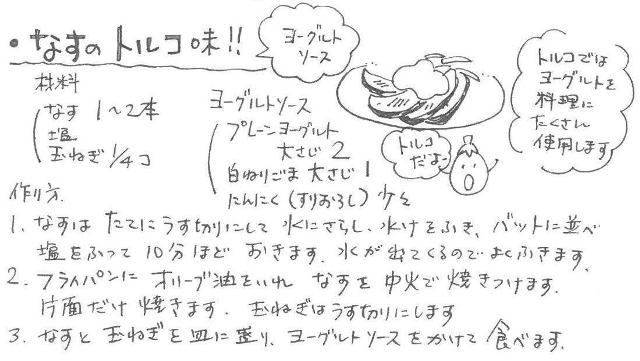 ・なすのトルコ味!!
ヨーグルト
ソース
材料
なす 1〜2本
塩
玉ねぎ 1/4コ
ヨーグルトソース
プレーンヨーグルト
大さじ 2
白ねりごま 大さじ 1
にんにく(すりおろし) 少々
トルコでは
ヨーグルトを
料理に
たくさん
使用します
トルコ
だよー
作り方
1. なすは たてにうす切りにして 水にさらし、水けをふき、バットに並べ
塩をふって 10分ほど おきます。水が出てくるので よくふきます。
2. フライパンに オリーブ油をいれ なすを 中火で 焼きつけます。
片面だけ 焼きます。 玉ねぎはうす切りにします
3. なすと 玉ねぎを 皿に 盛り、ヨーグルトソースをかけて 食べます。